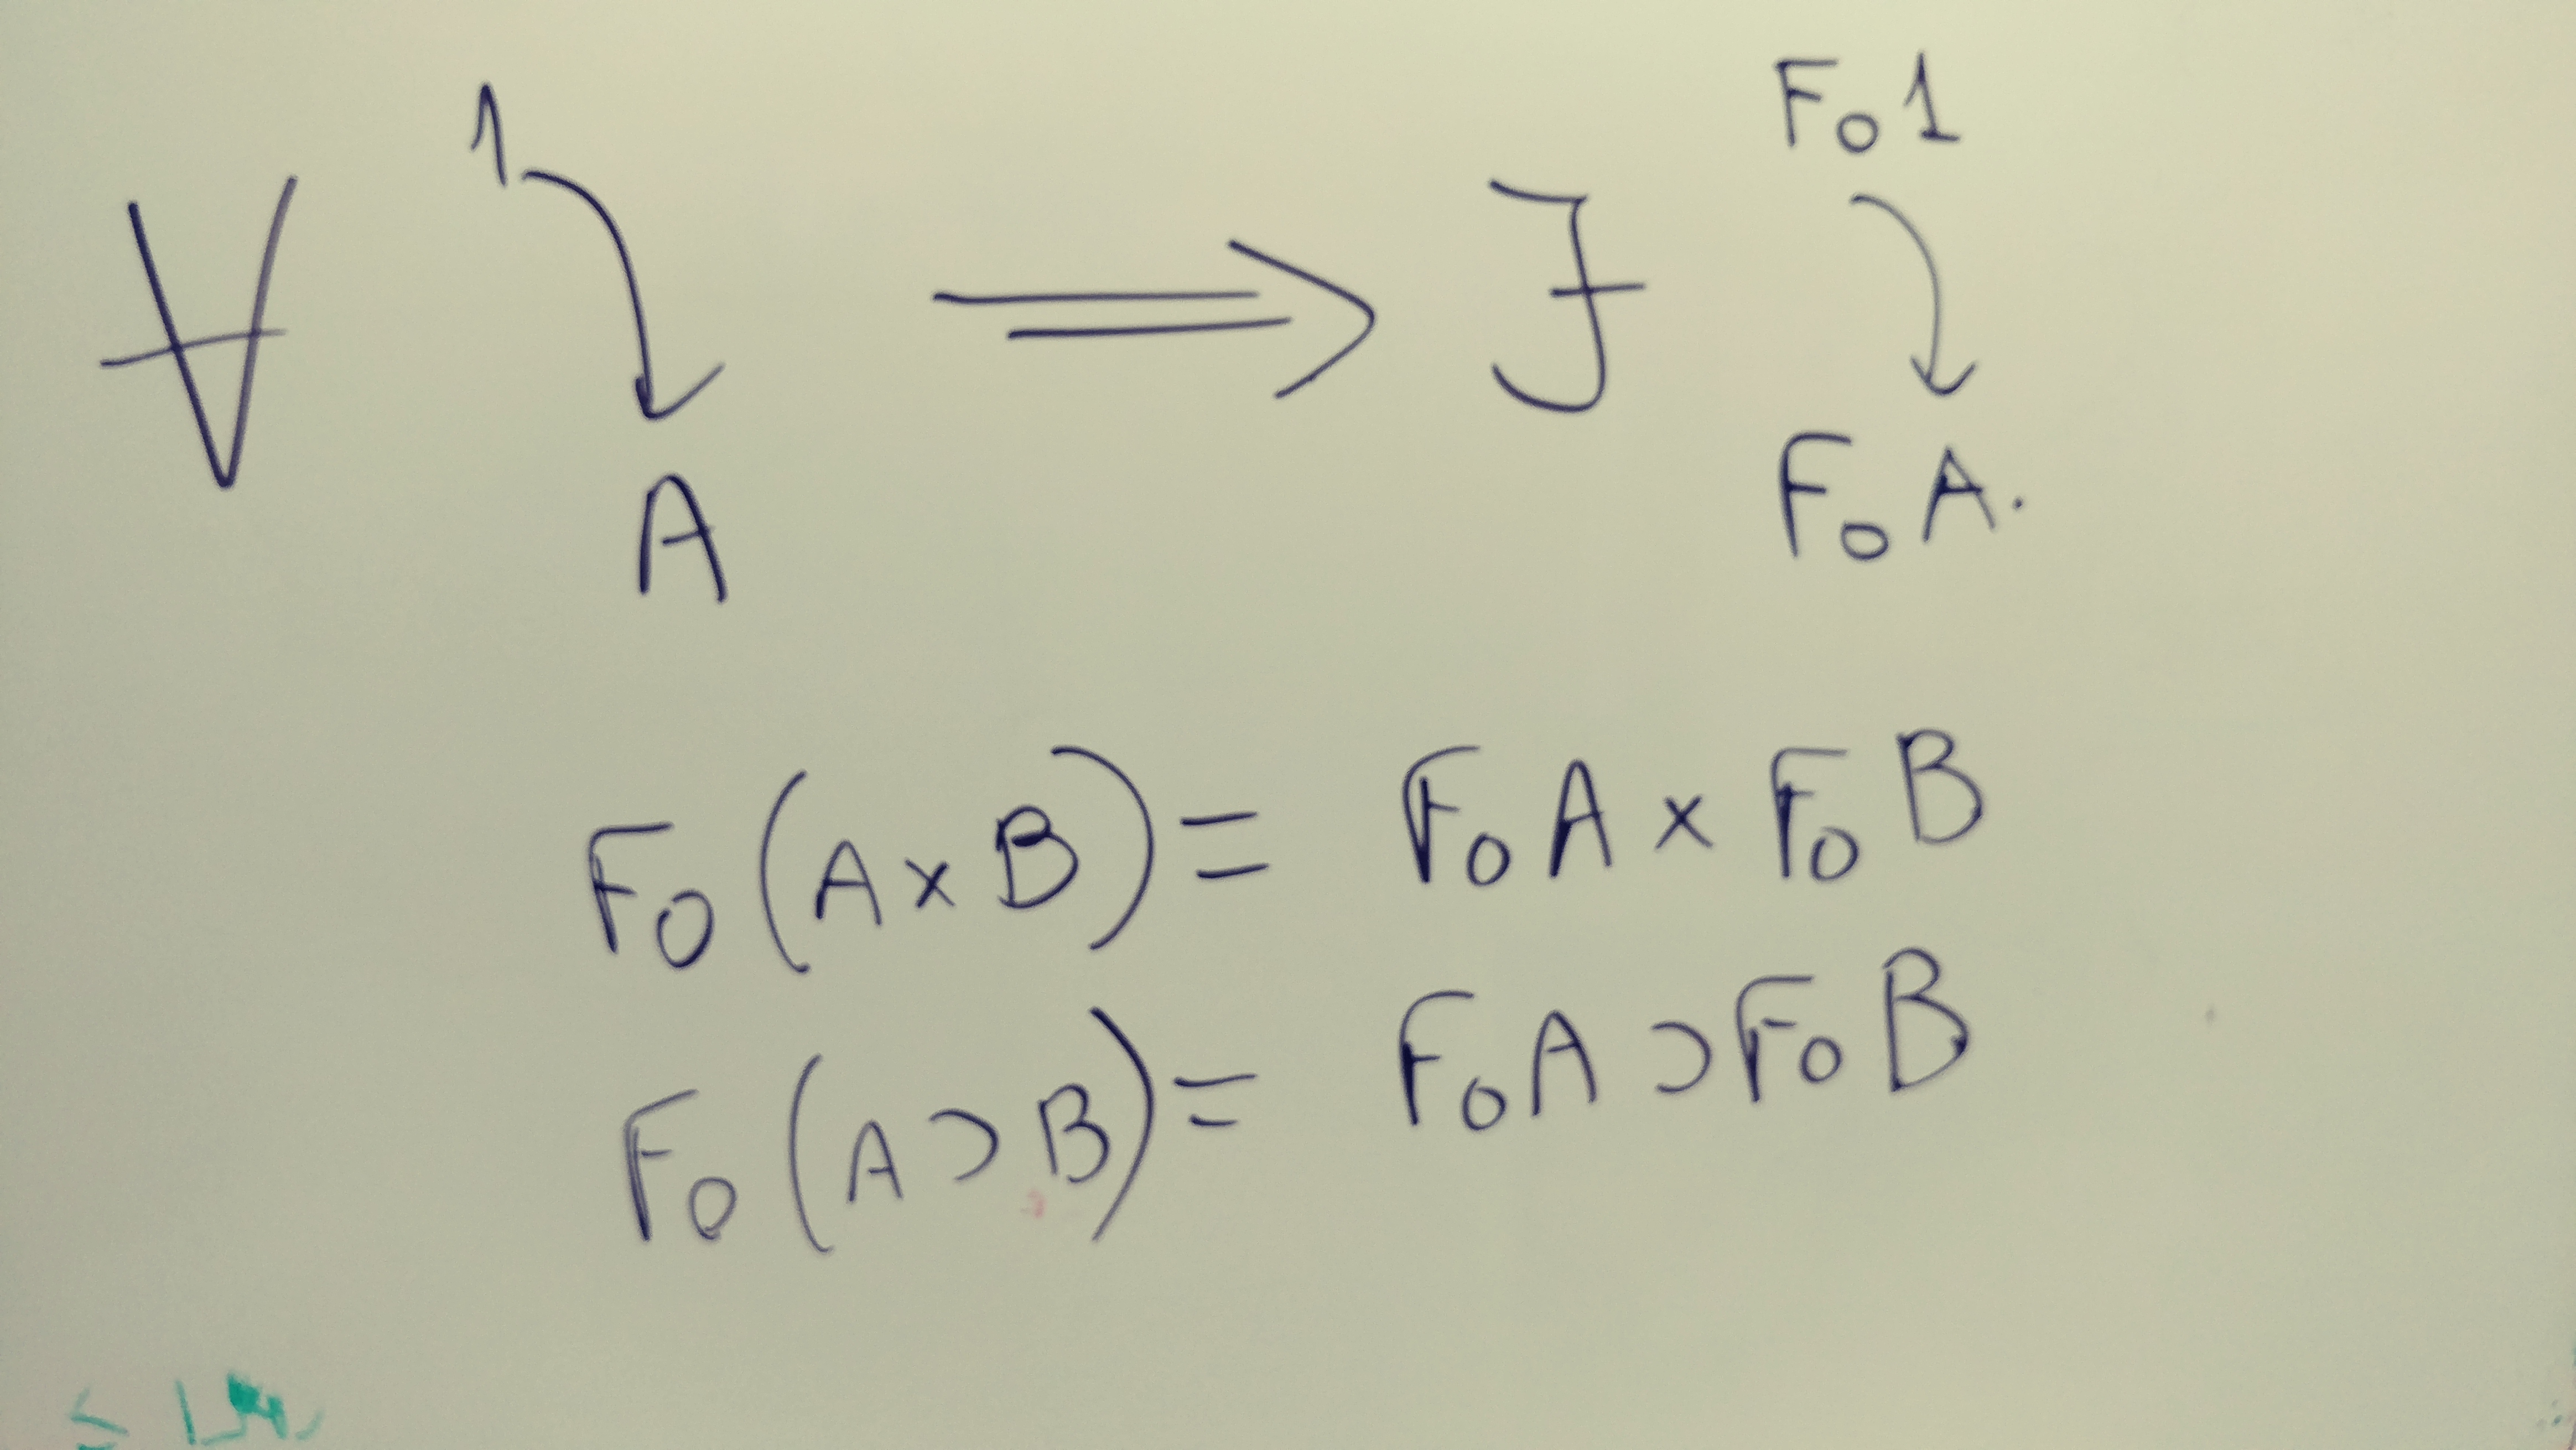 ∀ 1 → A ⟹ ∃ F₀1 → F₀A.
F₀(A×B) = F₀A × F₀B
F₀(A⊃B) = F₀A ⊃ F₀B